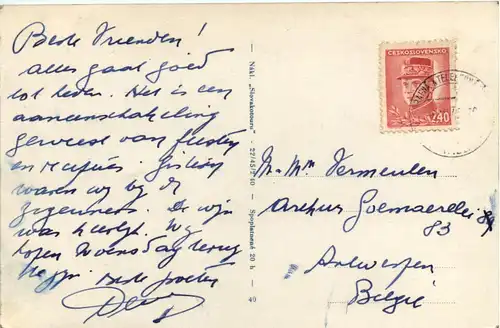 Beste Vrienden!
alles gaat goed
tot heden. Het is een
aaneenschakeling
geweest van feesten
en recepties. Gisteren
waren wij bij de
zigeuners. De wijn
was heerlijk. We
hopen Woensdag terug
te zijn.
Beste groeten
Nákl. „Slovakotour" - 
Spoločenský 20 h - 40
ČESKOSLOVENSKO
2'40
M. Mme Vermeulen
Arthur Goemaerelei 89
83
Antwerpen
België